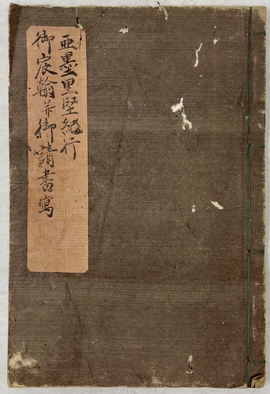 亜墨里堅紀行
御宸翰并御請書寫